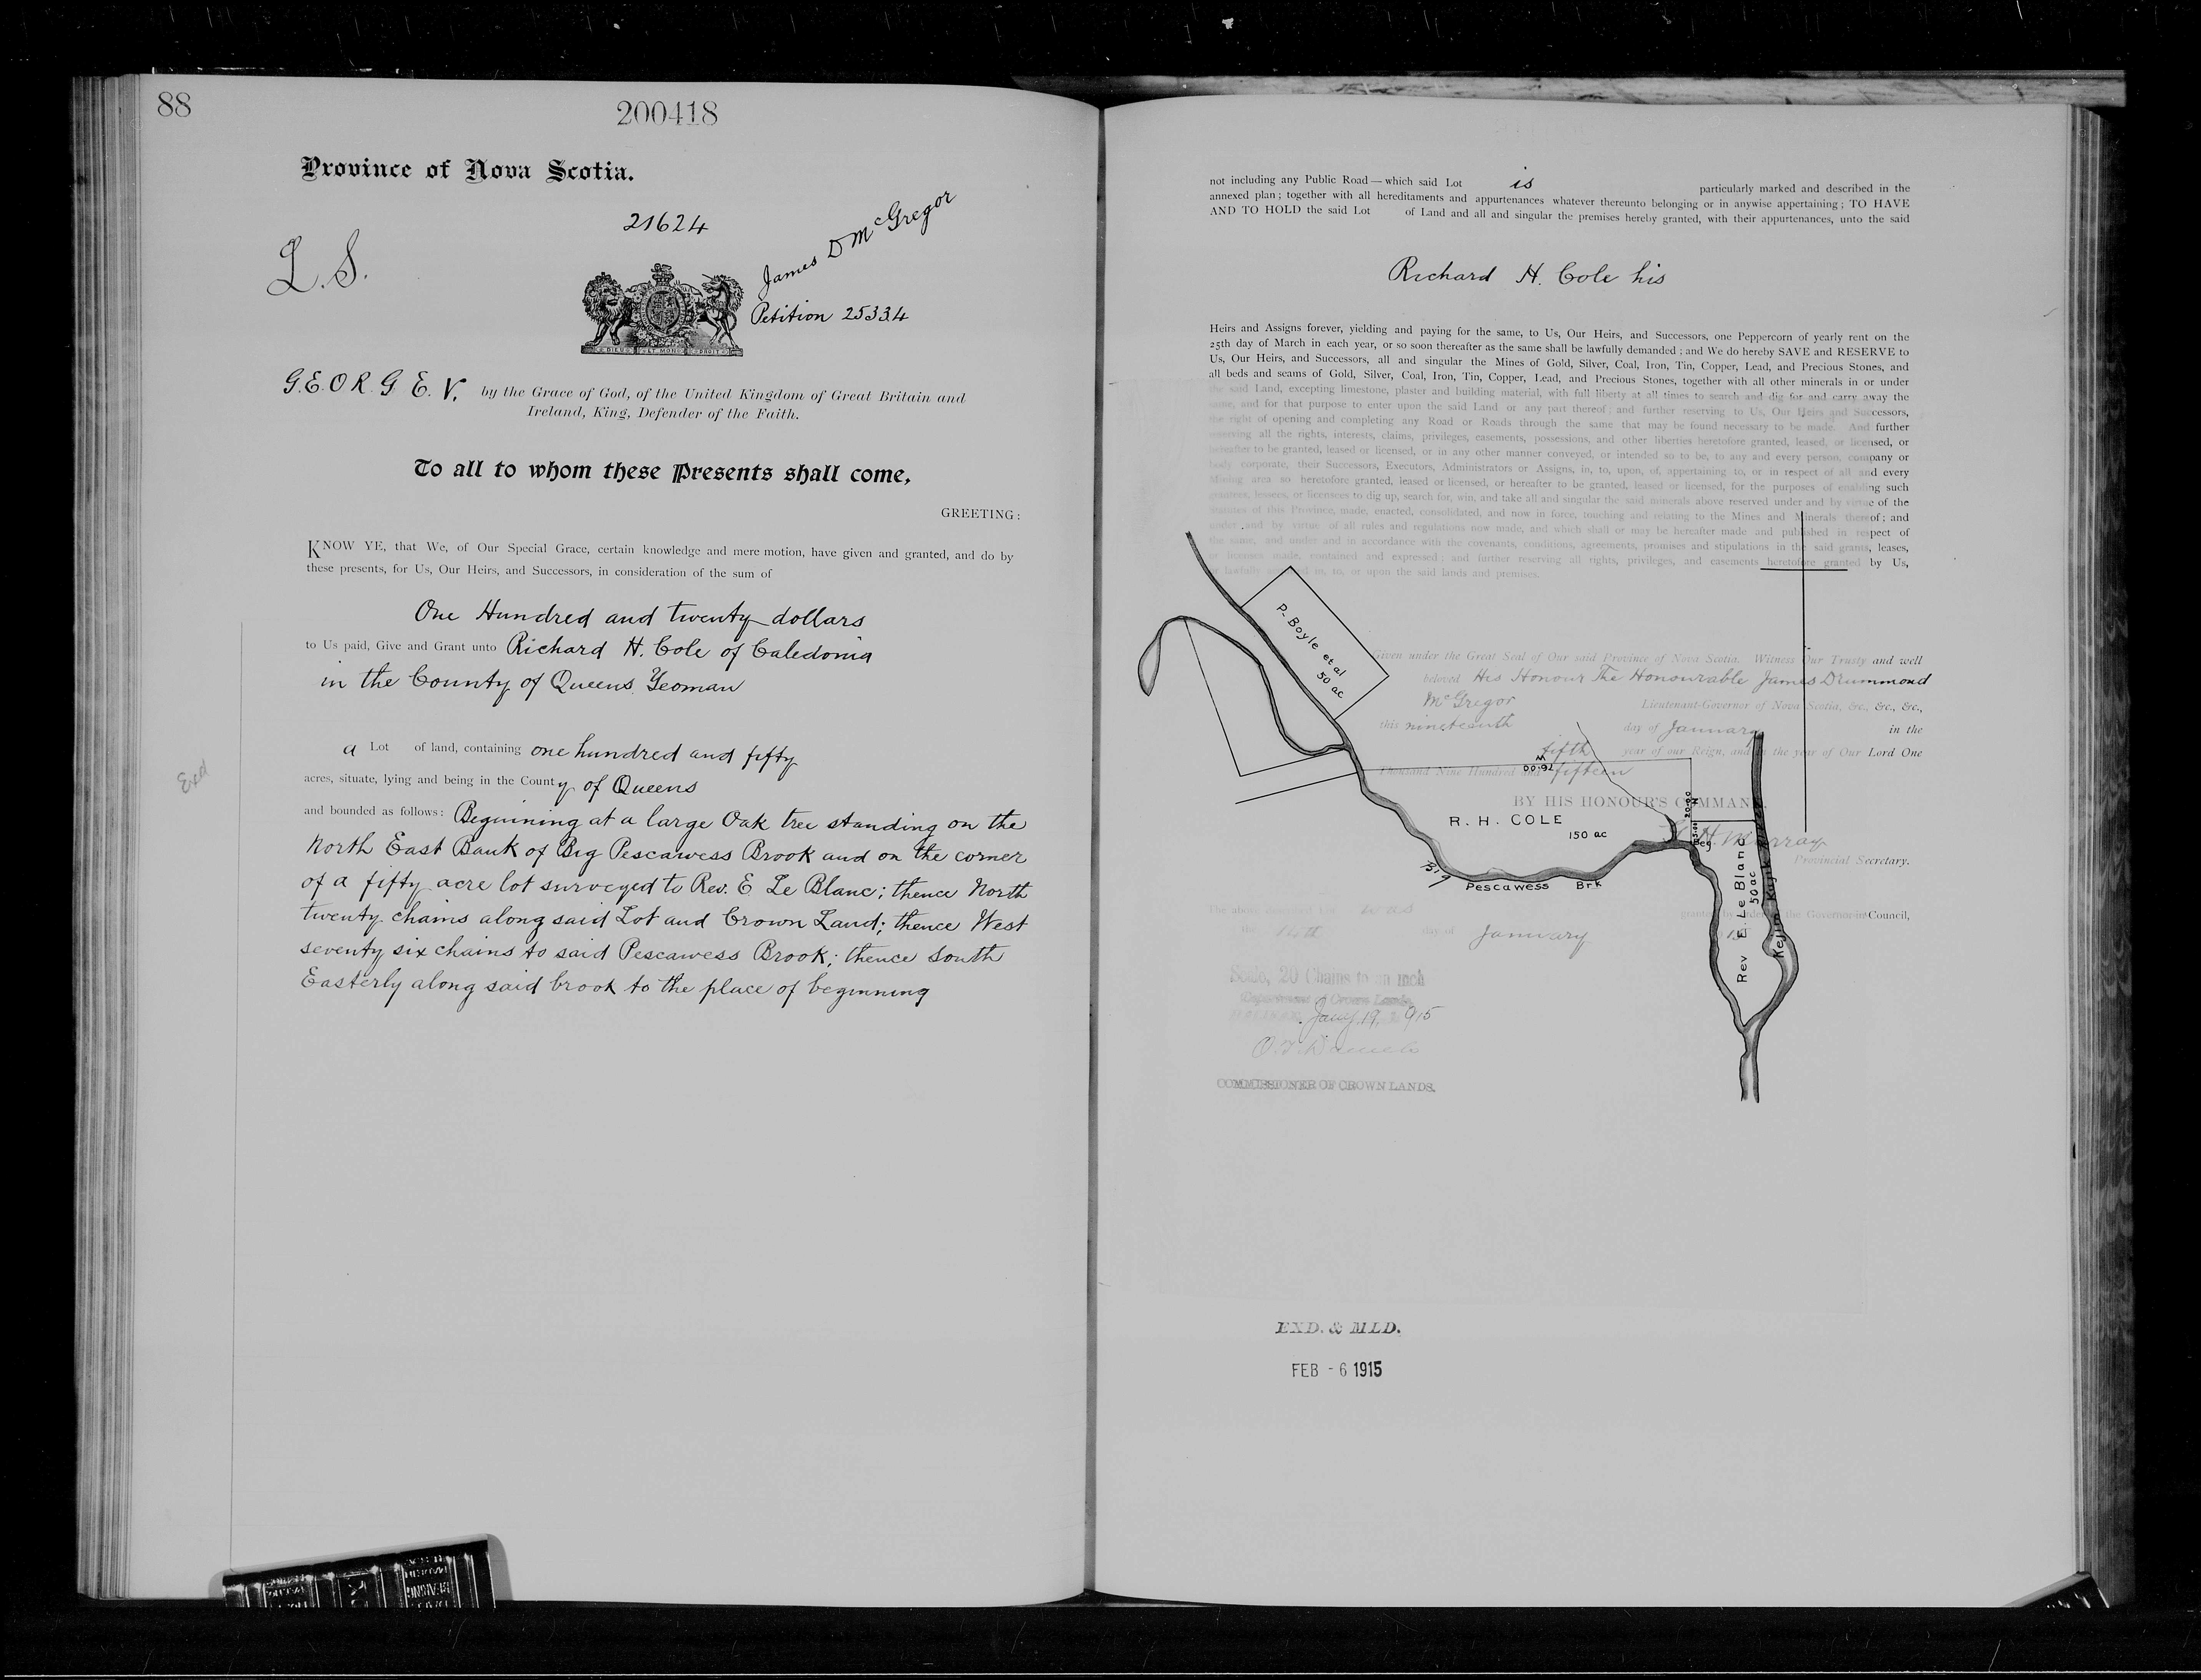 88
200418
Province of Nova Scotia.
21624
L.S.
James D McGregor
Petition 25334
DIEU ET MON DROIT
G.E.O.R.G.E. V. by the Grace of God, of the United Kingdom of Great Britain and
Ireland, King, Defender of the Faith.
To all to whom these Presents shall come,
GREETING:
KNOW YE, that We, of Our Special Grace, certain knowledge and mere motion, have given and granted, and do by
these presents, for Us, Our Heirs, and Successors, in consideration of the sum of
One Hundred and twenty dollars
to Us paid, Give and Grant unto Richard H. Cole of Caledonia
in the County of Queens Yeoman
a Lot of land, containing one hundred and fifty
Exd
acres, situate, lying and being in the County of Queens
and bounded as follows: Beginning at a large Oak tree standing on the
North East Bank of Big Pescawess Brook and on the corner
of a fifty acre lot surveyed to Rev. E Le Blanc; thence North
twenty chains along said Lot and Crown Land; thence West
seventy six chains to said Pescawess Brook; thence South
Easterly along said brook to the place of beginning
not including any Public Road—which said Lot is particularly marked and described in the
annexed plan; together with all hereditaments and appurtenances whatever thereunto belonging or in anywise appertaining; TO HAVE
AND TO HOLD the said Lot of Land and all and singular the premises hereby granted, with their appurtenances, unto the said
Richard H. Cole his
Heirs and Assigns forever, yielding and paying for the same, to Us, Our Heirs, and Successors, one Peppercorn of yearly rent on the
25th day of March in each year, or so soon thereafter as the same shall be lawfully demanded; and We do hereby SAVE and RESERVE to
Us, Our Heirs, and Successors, all and singular the Mines of Gold, Silver, Coal, Iron, Tin, Copper, Lead, and Precious Stones, and
all beds and seams of Gold, Silver, Coal, Iron, Tin, Copper, Lead, and Precious Stones, together with all other minerals in or under
the said Land, excepting limestone, plaster and building material, with full liberty at all times to search and dig for and carry away the
same, and for that purpose to enter upon the said Land or any part thereof; and further reserving to Us, Our Heirs and Successors,
the right of opening and completing any Road or Roads through the same that may be found necessary to be made. And further
reserving all the rights, interests, claims, privileges, easements, possessions, and other liberties heretofore granted, leased, or licensed, or
hereafter to be granted, leased or licensed, or in any other manner conveyed, or intended so to be, to any and every person, company or
body corporate, their Successors, Executors, Administrators or Assigns, in, to, upon, of, appertaining to, or in respect of all and every
Mining area so heretofore granted, leased or licensed, or hereafter to be granted, leased or licensed, for the purposes of enabling such
grantees, lessees, or licensees to dig up, search for, win, and take all and singular the said minerals above reserved under and by virtue of the
Statutes of this Province, made, enacted, consolidated, and now in force, touching and relating to the Mines and Minerals thereof; and
under and by virtue of all rules and regulations now made, and which shall or may be hereafter made and published in respect of
the same, and under and in accordance with the covenants, conditions, agreements, promises and stipulations in the said grants, leases,
or licenses made, contained and expressed; and further reserving all rights, privileges, and easements heretofore granted by Us,
or lawfully in, to, or upon the said lands and premises.
P. Boyle et al
50 ac
Given under the Great Seal of Our said Province of Nova Scotia. Witness Our Trusty and well
beloved His Honour The Honourable James Drummond
McGregor Lieutenant-Governor of Nova Scotia, &c., &c., &c.,
this nineteenth day of January in the
fifth year of our Reign, and in the year of Our Lord One
Thousand Nine Hundred and fifteen
W
76.00
BY HIS HONOUR'S COMMAND,
N
20.00
R. H. COLE
150 ac
Beg
H. Murray
Provincial Secretary.
Big Pescawess Brk
Rev E. Le Blanc
50 ac
Kejim Kujik River
The above was granted by the Governor-in-Council,
the 14th day of January 15
Scale, 20 Chains to an inch
Department of Crown Lands,
Jany 19, 1915
O.T. Daniels
COMMISSIONER OF CROWN LANDS.
EXD. & MLD.
FEB - 6 1915